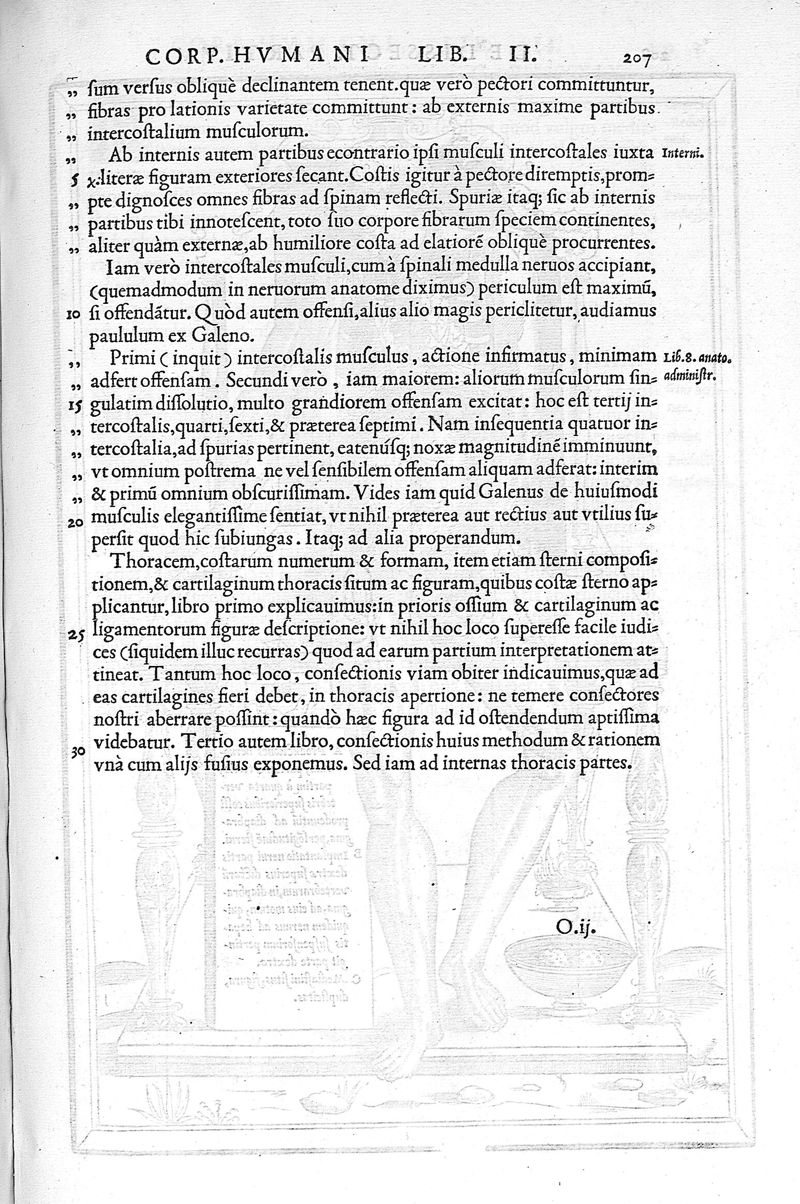 CORP. HVMANI LIB. II. 207
„ ſum verſus obliquè declinantem tenent.quæ verò pectori committuntur,
„ fibras pro lationis varietate committunt: ab externis maxime partibus
„ intercoſtalium muſculorum.
„ Ab internis autem partibus econtrario ipſi muſculi intercoſtales iuxta Interni.
5 χ:literæ figuram exteriores ſecant.Coſtis igitur à pectore diremptis,prom=
„ pte dignoſces omnes fibras ad ſpinam reflecti. Spuriæ itaq; ſic ab internis
„ partibus tibi innoteſcent, toto ſuo corpore fibrarum ſpeciem continentes,
„ aliter quàm externæ,ab humiliore coſta ad elatiorē obliquè procurrentes.
Iam verò intercoſtales muſculi,cum à ſpinali medulla neruos accipiant,
(quemadmodum in neruorum anatome diximus) periculum eſt maximū,
10 ſi offendātur. Quòd autem offenſi,alius alio magis periclitetur,audiamus
paululum ex Galeno.
„ Primi ( inquit ) intercoſtalis muſculus , actione infirmatus , minimam Lib.8. anato.
„ adfert offenſam . Secundi verò , iam maiorem: aliorum muſculorum ſin= adminiſtr.
15 gulatim diſſolutio, multo grandiorem offenſam excitat: hoc eſt tertij in=
„ tercoſtalis,quarti,ſexti,& præterea ſeptimi . Nam inſequentia quatuor in=
„ tercoſtalia,ad ſpurias pertinent, eatenúſq; noxæ magnitudinē imminuunt,
„ vt omnium poſtrema ne vel ſenſibilem offenſam aliquam adferat: interim
„ & primū omnium obſcuriſſimam. Vides iam quid Galenus de huiuſmodi
20 muſculis elegantiſſime ſentiat, vt nihil præterea aut rectius aut vtilius ſu=
perſit quod hic ſubiungas . Itaq; ad alia properandum.
Thoracem,coſtarum numerum & formam, item etiam ſterni compoſi=
tionem,& cartilaginum thoracis ſitum ac figuram,quibus coſtæ ſterno ap=
plicantur, libro primo explicauimus:in prioris oſſium & cartilaginum ac
25 ligamentorum figuræ deſcriptione: vt nihil hoc loco ſupereſſe facile iudi=
ces (ſiquidem illuc recurras) quod ad earum partium interpretationem at=
tineat. Tantum hoc loco , conſectionis viam obiter indicauimus,quæ ad
eas cartilagines fieri debet, in thoracis apertione: ne temere conſectores
noſtri aberrare poſſint : quandò hæc figura ad id oſtendendum aptiſſima
30 videbatur. Tertio autem libro, conſectionis huius methodum & rationem
vnà cum alijs fuſius exponemus. Sed iam ad internas thoracis partes.
O.ij.